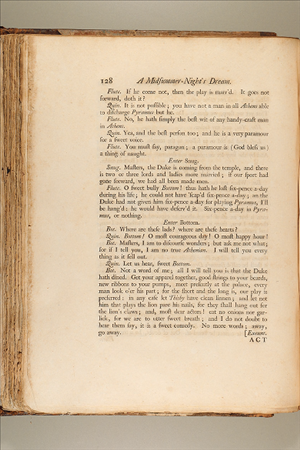 128 A Midsummer-Night's Dream.
Flute. If he come not, then the play is marr'd. It goes not
forward, doth it?
Quin. It is not possible; you have not a man in all Athens able
to discharge Pyramus but he.
Flute. No, he hath simply the best wit of any handy-craft man
in Athens.
Quin. Yea, and the best person too; and he is a very paramour
for a sweet voice.
Flute. You must say, paragon; a paramour is (God bless us)
a thing of naught.
Enter Snug.
Snug. Masters, the Duke is coming from the temple, and there
is two or three lords and ladies more married; if our sport had
gone forward, we had all been made men.
Flute. O sweet bully Bottom! thus hath he lost six-pence a-day
during his life; he could not have 'scap'd six-pence a-day; an the
Duke had not given him six-pence a-day for playing Pyramus, I'll
be hang'd; he would have deserv'd it. Six-pence a-day in Pyra-
mus, or nothing.
Enter Bottom.
Bot. Where are these lads? where are these hearts?
Quin. Bottom! O most couragious day! O most happy hour!
Bot. Masters, I am to discourse wonders; but ask me not what;
for if I tell you, I am no true Athenian. I will tell you every
thing as it fell out.
Quin. Let us hear, sweet Bottom.
Bot. Not a word of me; all I will tell you is that the Duke
hath dined. Get your apparel together, good strings to your beards,
new ribbons to your pumps, meet presently at the palace, every
man look o'er his part; for the short and the long is, our play is
preferred; in any case let Thisby have clean linnen; and let not
him that plays the lion pare his nails, for they shall hang out for
the lion's claws; and, most dear actors! eat no onions nor gar-
lick, for we are to utter sweet breath; and I do not doubt to
hear them say, it is a sweet comedy. No more words; away,
go away. [Exeunt.
ACT